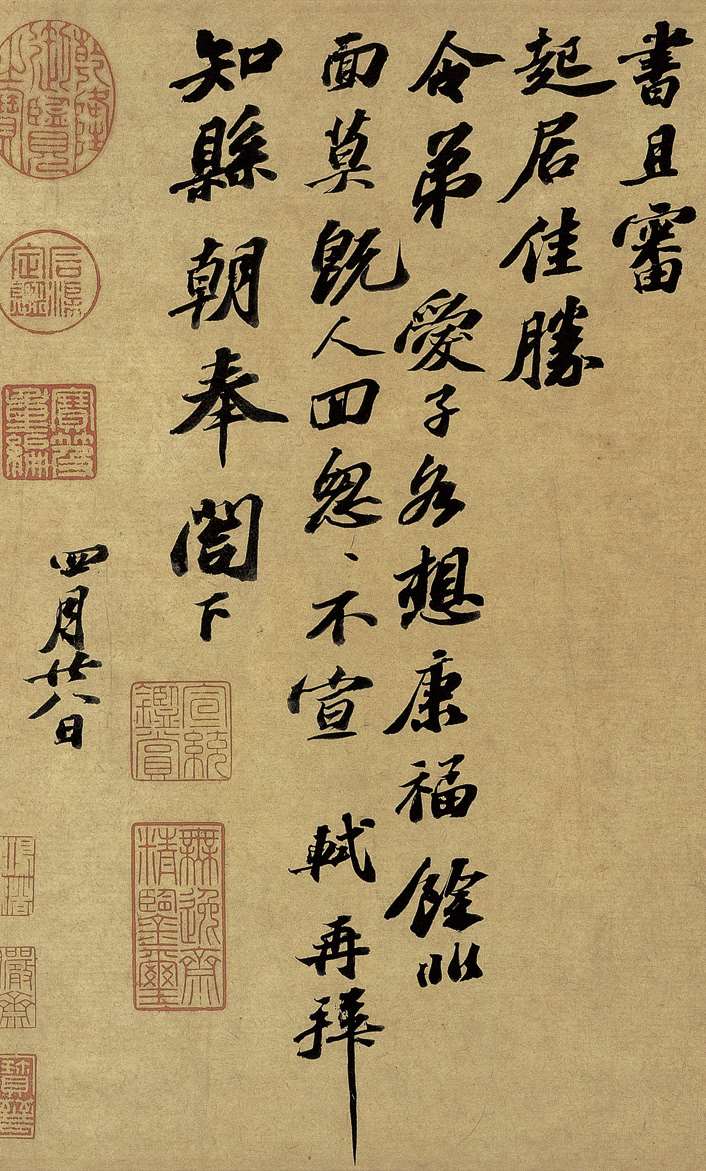 書且審
起居佳勝
令弟愛子各想康福餘非
面莫既人回怱〻不宣 軾再拜
知縣朝奉閤下
四月廿八日
宣統鑑賞
無逸齋精鑒璽
乾隆御覽之寶
石渠定鑑
寶笈重編